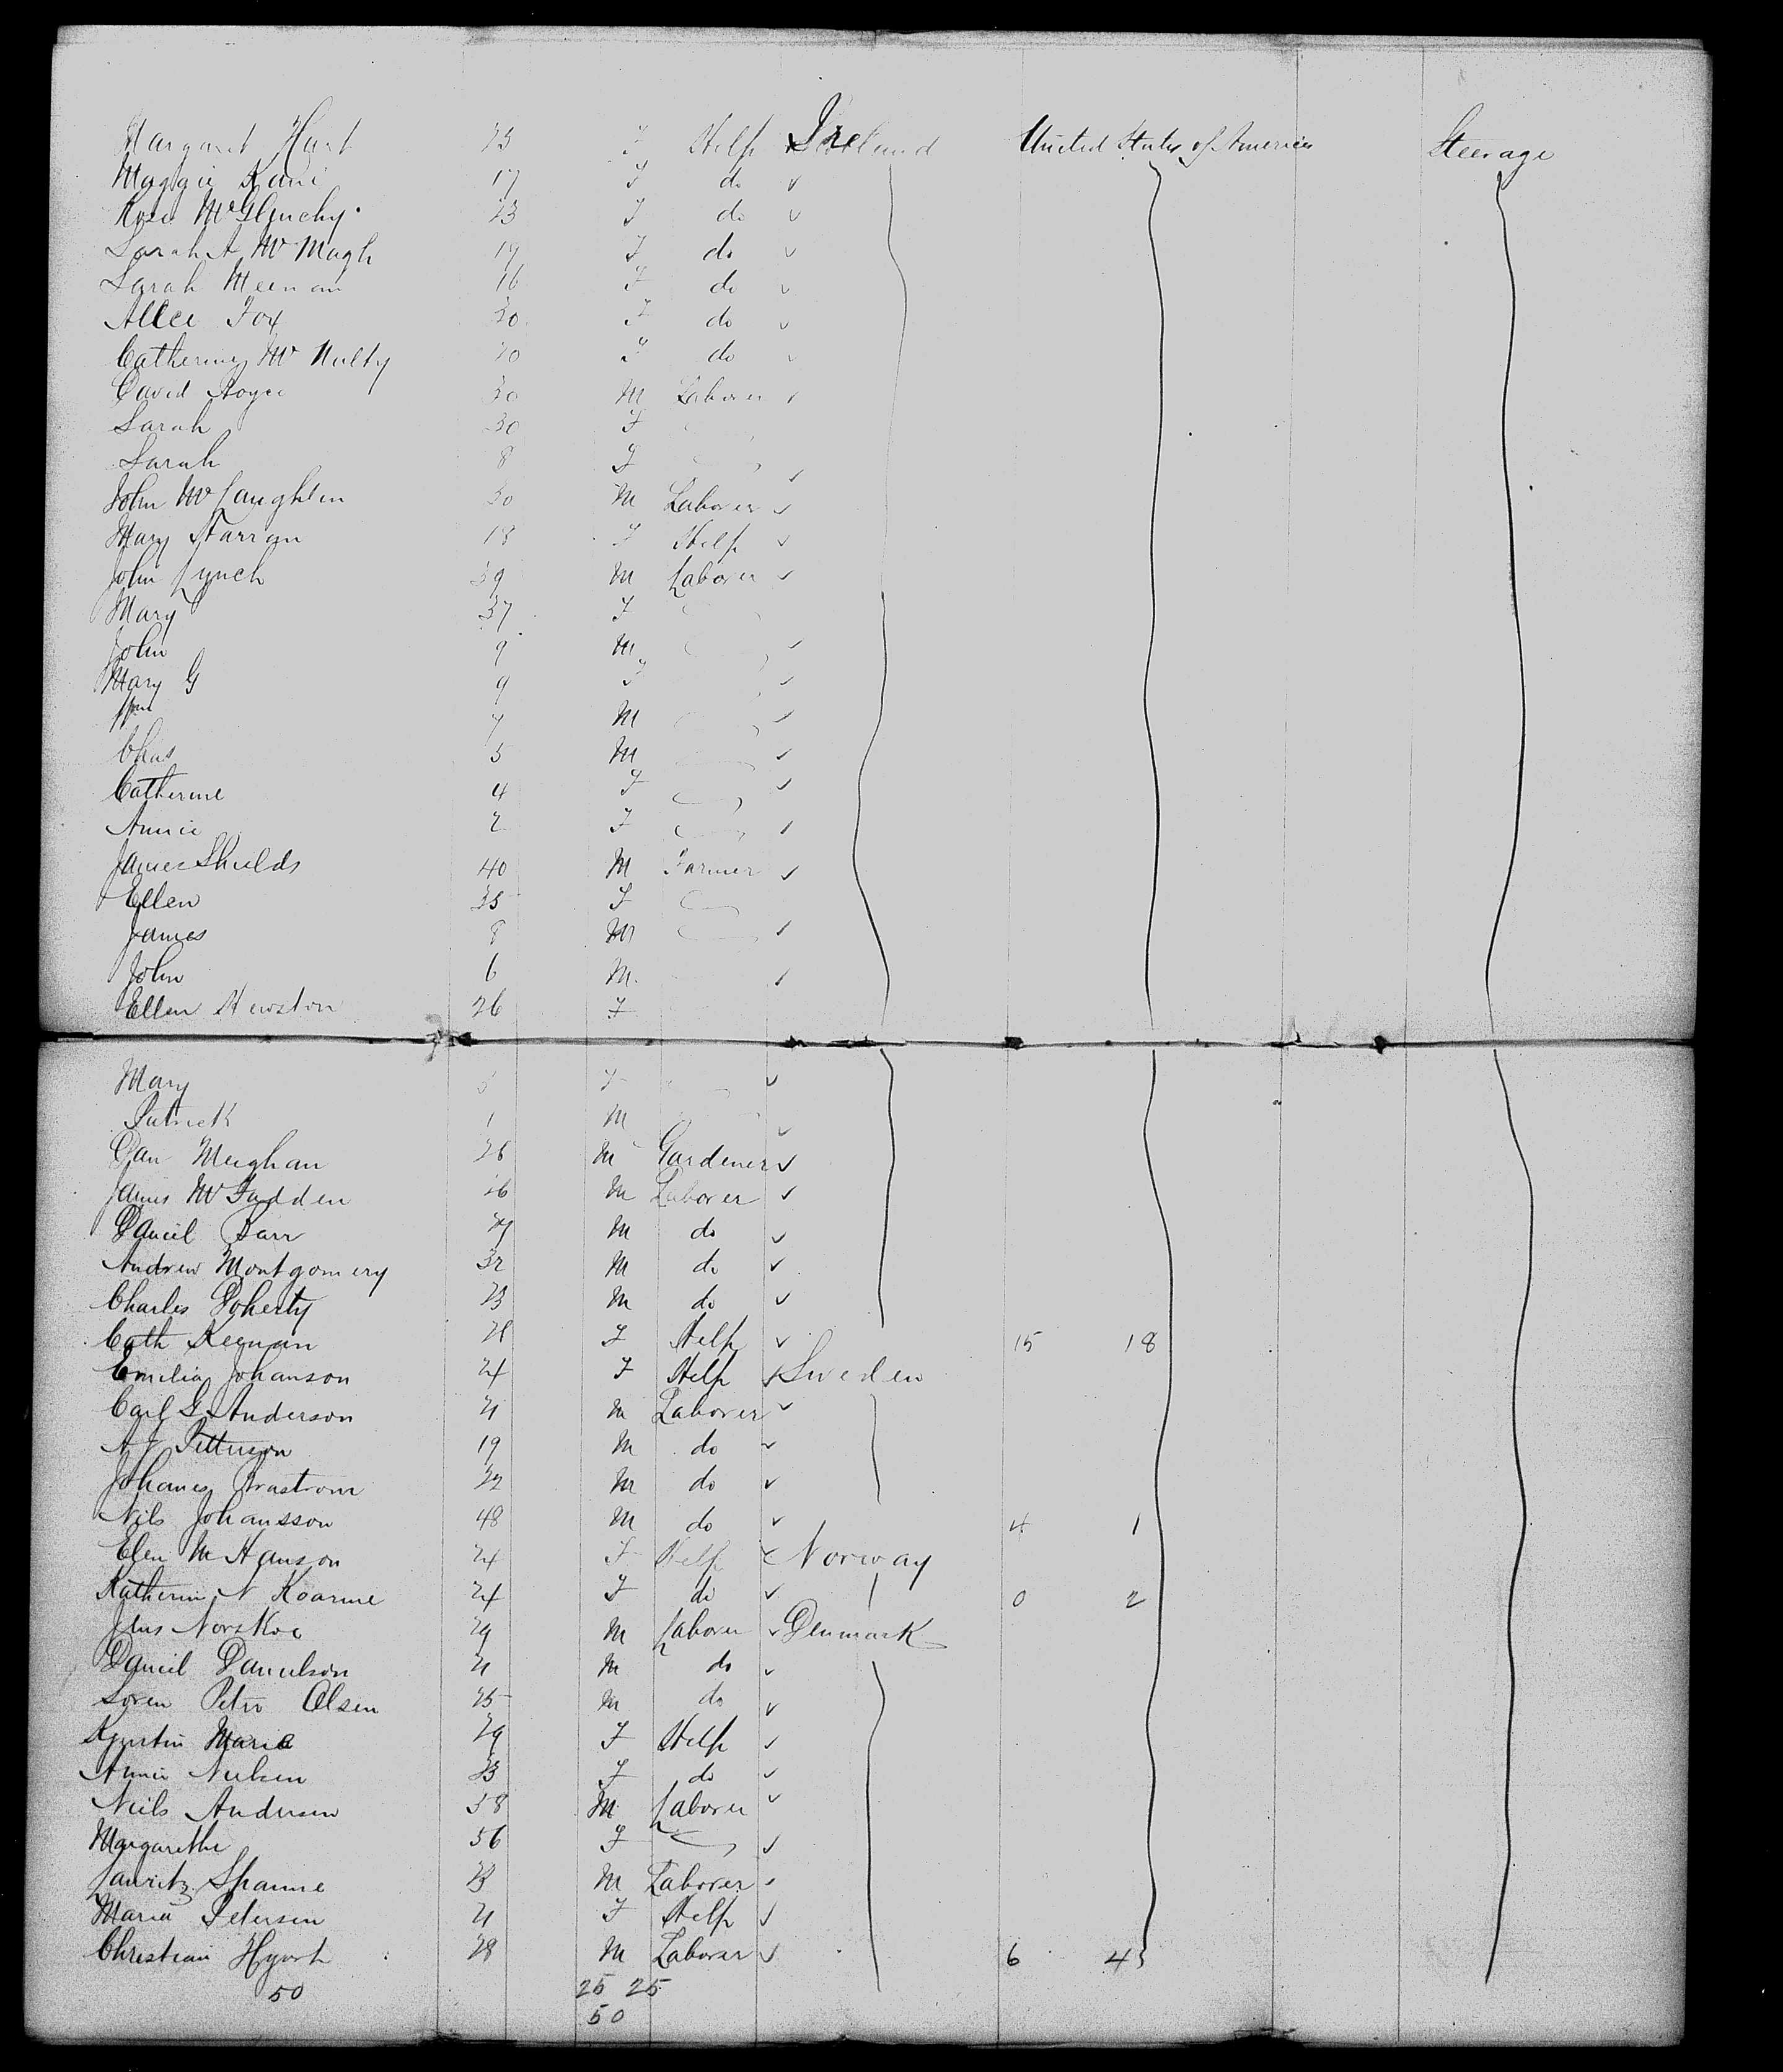 Margaret Hart 23 F Help Ireland United States of America Steerage
Maggie Kane 17 F do
Rose McGlinchy 23 F do
Sarah A McMagh 17 F do
Sarah Meenan 16 F do
Alice Fox 30 F do
Catherine McNulty 20 F do
David 30 M Laborer
Sarah 30 F
Sarah 8 F
John McLaughlin 30 M Laborer
Mary 18 F Help
John Lynch 39 M Laborer
Mary 37 F
John 9 M
Mary G 9 F
7 M
Chas 5 M
Catherine 4 F
Annie 2 F
James Shields 40 M Farmer
Ellen 35 F
James 8 M
John 6 M
Ellen Hewston 26 F
Mary F
Patrick 1 M
Dan Meighan 26 M Gardener
James McFadden 26 M Laborer
Daniel Barr M do
Andrew Montgomery 32 M do
Charles Doherty 23 M do
Cath Keenan F Help 15 18
Emilia Johanson 24 F Help Sweden
Carl G. Anderson 21 M Laborer
A J Petterson 19 M do
Johanes 22 M do
Nils Johansson 48 M do 4 1
Elen M Hanson 24 F Help Norway
Katherin N Koarme 24 F do 0 2
Jens Norskoe 29 M Laborer Denmark
Daniel Danielson 21 M do
Soren Peter Olsen 25 M do
Kjerstin Marie 29 F Help
Annie Nielsen 23 F do
Neils Andersen 58 M Laborer
Margarethe 56 F
Lauritz 23 M Laborer
Maria Petersen 21 F Help
Christian Hjorth 28 M Laborer 6 43
50 25 25
50